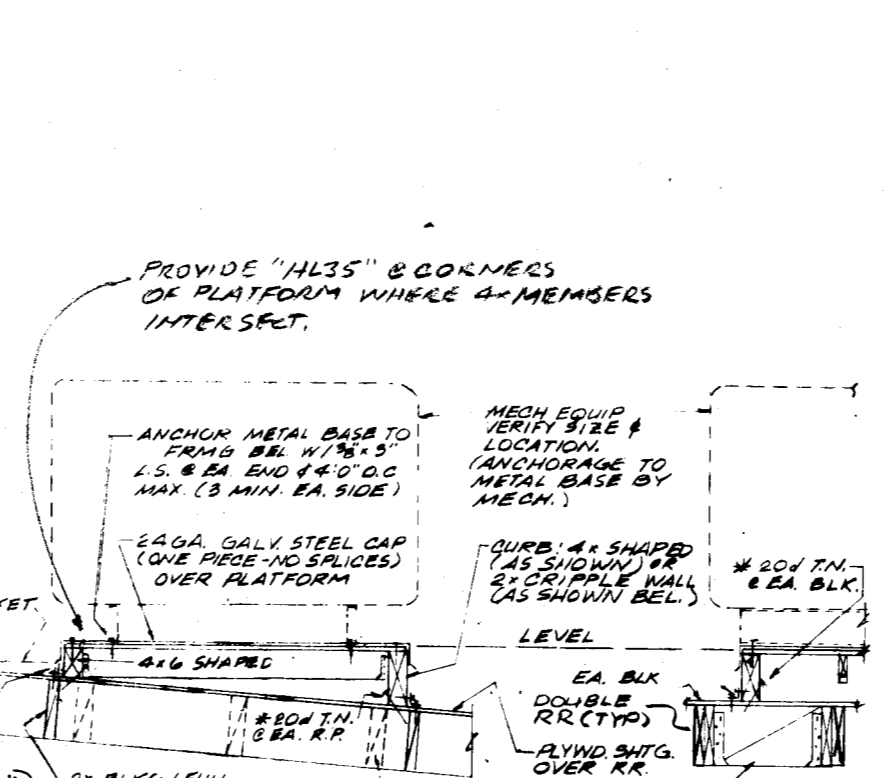 PROVIDE "HL35" @ CORNERS
OF PLATFORM WHERE 4x MEMBERS
INTERSECT.
ANCHOR METAL BASE TO
FRMG BEL W/ 3/8" x 3"
L.S. @ EA. END & 4'0" O.C
MAX. (3 MIN. EA. SIDE)
24 GA. GALV. STEEL CAP
(ONE PIECE-NO SPLICES)
OVER PLATFORM
MECH EQUIP
VERIFY SIZE &
LOCATION.
(ANCHORAGE TO
METAL BASE BY
MECH.)
CURB: 4x SHAPED
(AS SHOWN) OR
2x CRIPPLE WALL
(AS SHOWN BEL.)
* 20d T.N.
@ EA. BLK.
LEVEL
4x6 SHAPED
* 20d T.N.
@ EA. R.P.
EA. BLK
DOUBLE
RR (TYP)
PLYWD. SHTG.
OVER RR.